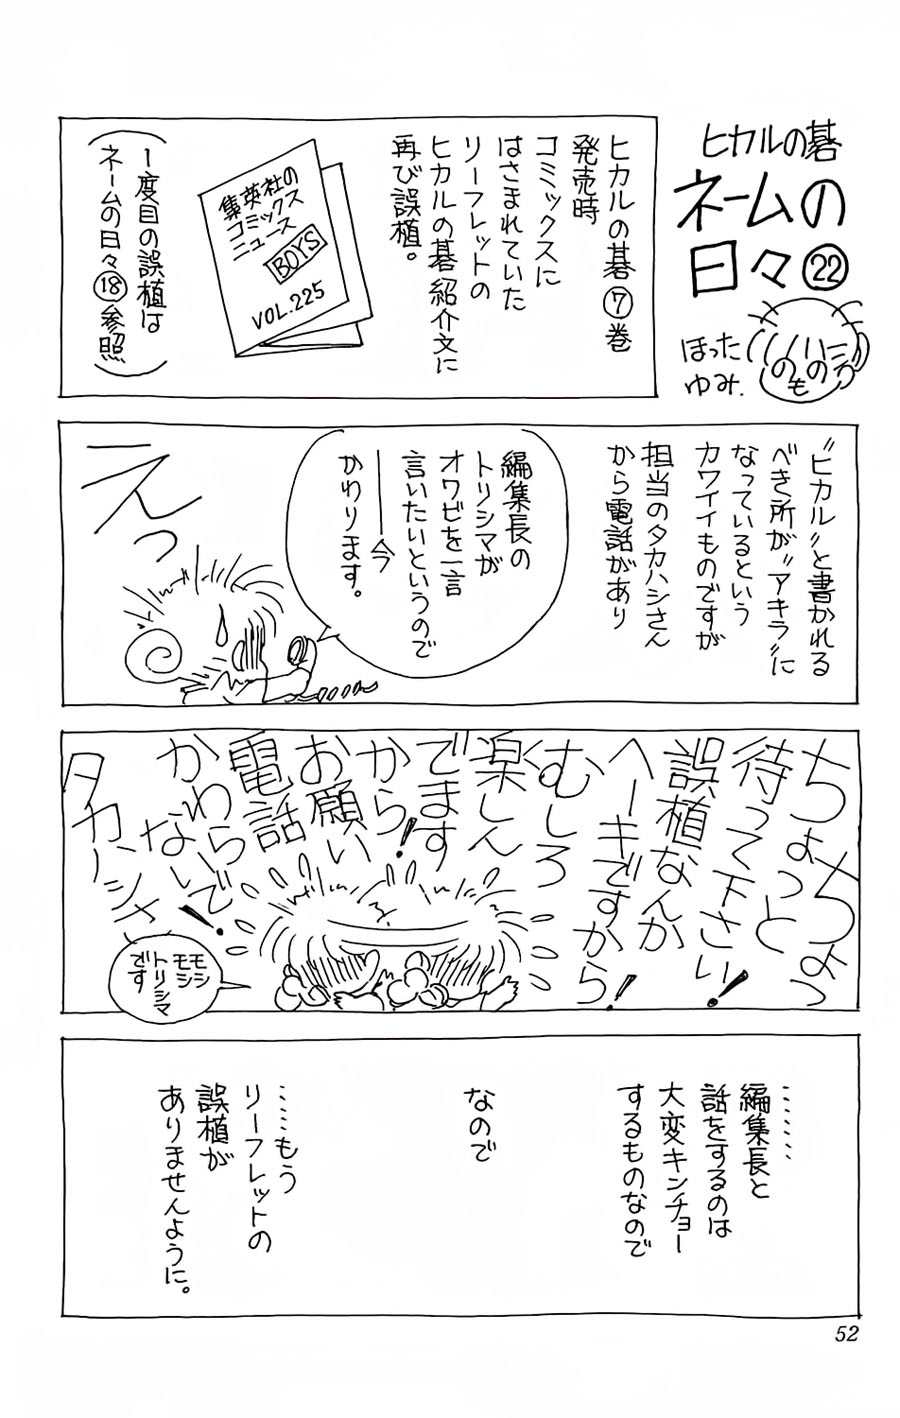 ヒカルの碁
ネームの
日々㉒
ほった
ゆみ.
ヒカルの碁⑦巻
発売時
コミックスに
はさまれていた
リーフレットの
ヒカルの碁紹介文に
再び誤植。
集英社の
コミックス
ニュース
BOYS
VOL.225
（1度目の誤植は
ネームの日々⑱参照）
〝ヒカル〟と書かれる
べき所が〝アキラ〟に
なっているという
カワイイものですが
担当のタカハシさん
から電話があり
編集長の
トリシマが
オワビを一言
言いたいというので
――今
かわります。
えっ
ちょっちょっ
ちょっと
待って下さい！
誤植なんか
ヘーキですから！
むしろ
楽しん
でます
から！
お願い
電話
かわら
ないで！
タカハシさ
モシ
モシ
トリシマ
です
‥‥‥
編集長と
話をするのは
大変キンチョー
するものなので
なので
‥‥もう
リーフレットの
誤植が
ありませんように。
52